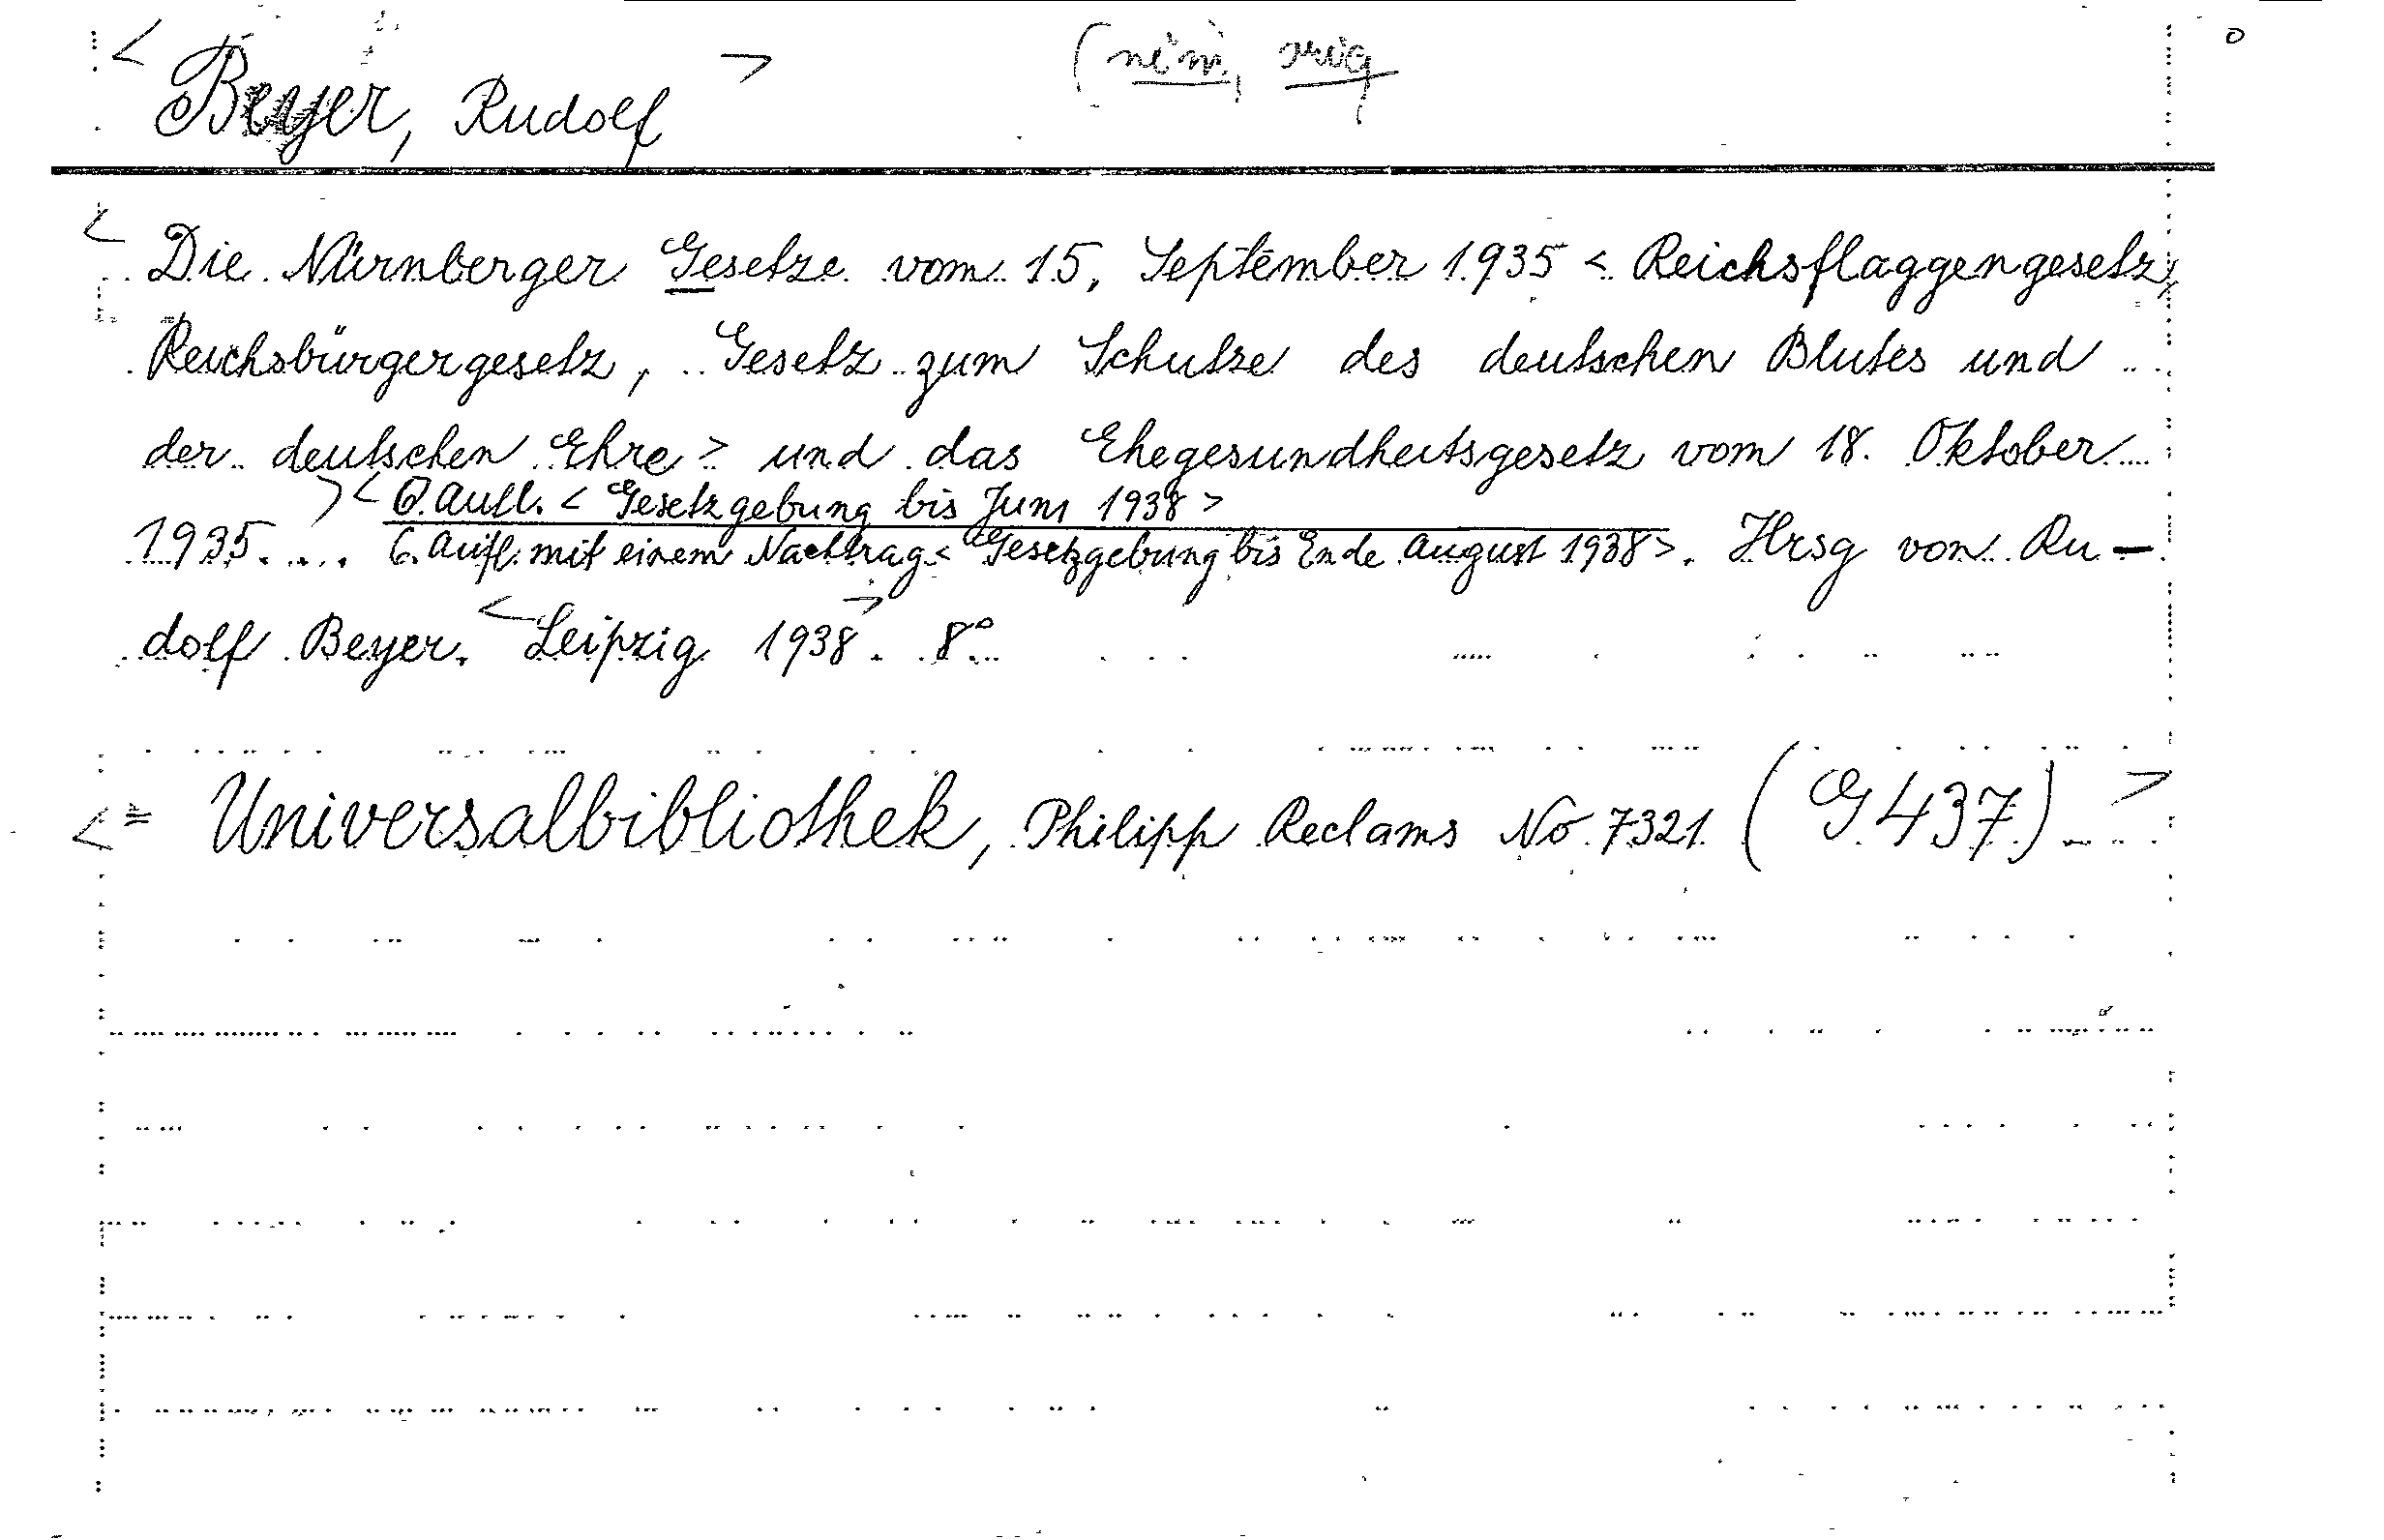 < Beyer, Rudolf >
< Die Nürnberger Gesetze vom 15. September 1935 < Reichsflaggengesetz,
Reichsbürgergesetz, Gesetz zum Schutze des deutschen Blutes und
der deutschen Ehre > und das Ehegesundheitsgesetz vom 18. Oktober
> < 6. Aufl. < Gesetzgebung bis Juni 1938 >
1935. ... 6. Aufl. mit einem Nachtrag < Gesetzgebung bis Ende August 1938 >. Hrsg von Ru-
dolf Beyer. < Leipzig 1938 >. 8°
< = Universalbibliothek, Philipp Reclams No 7321. (G 437) >